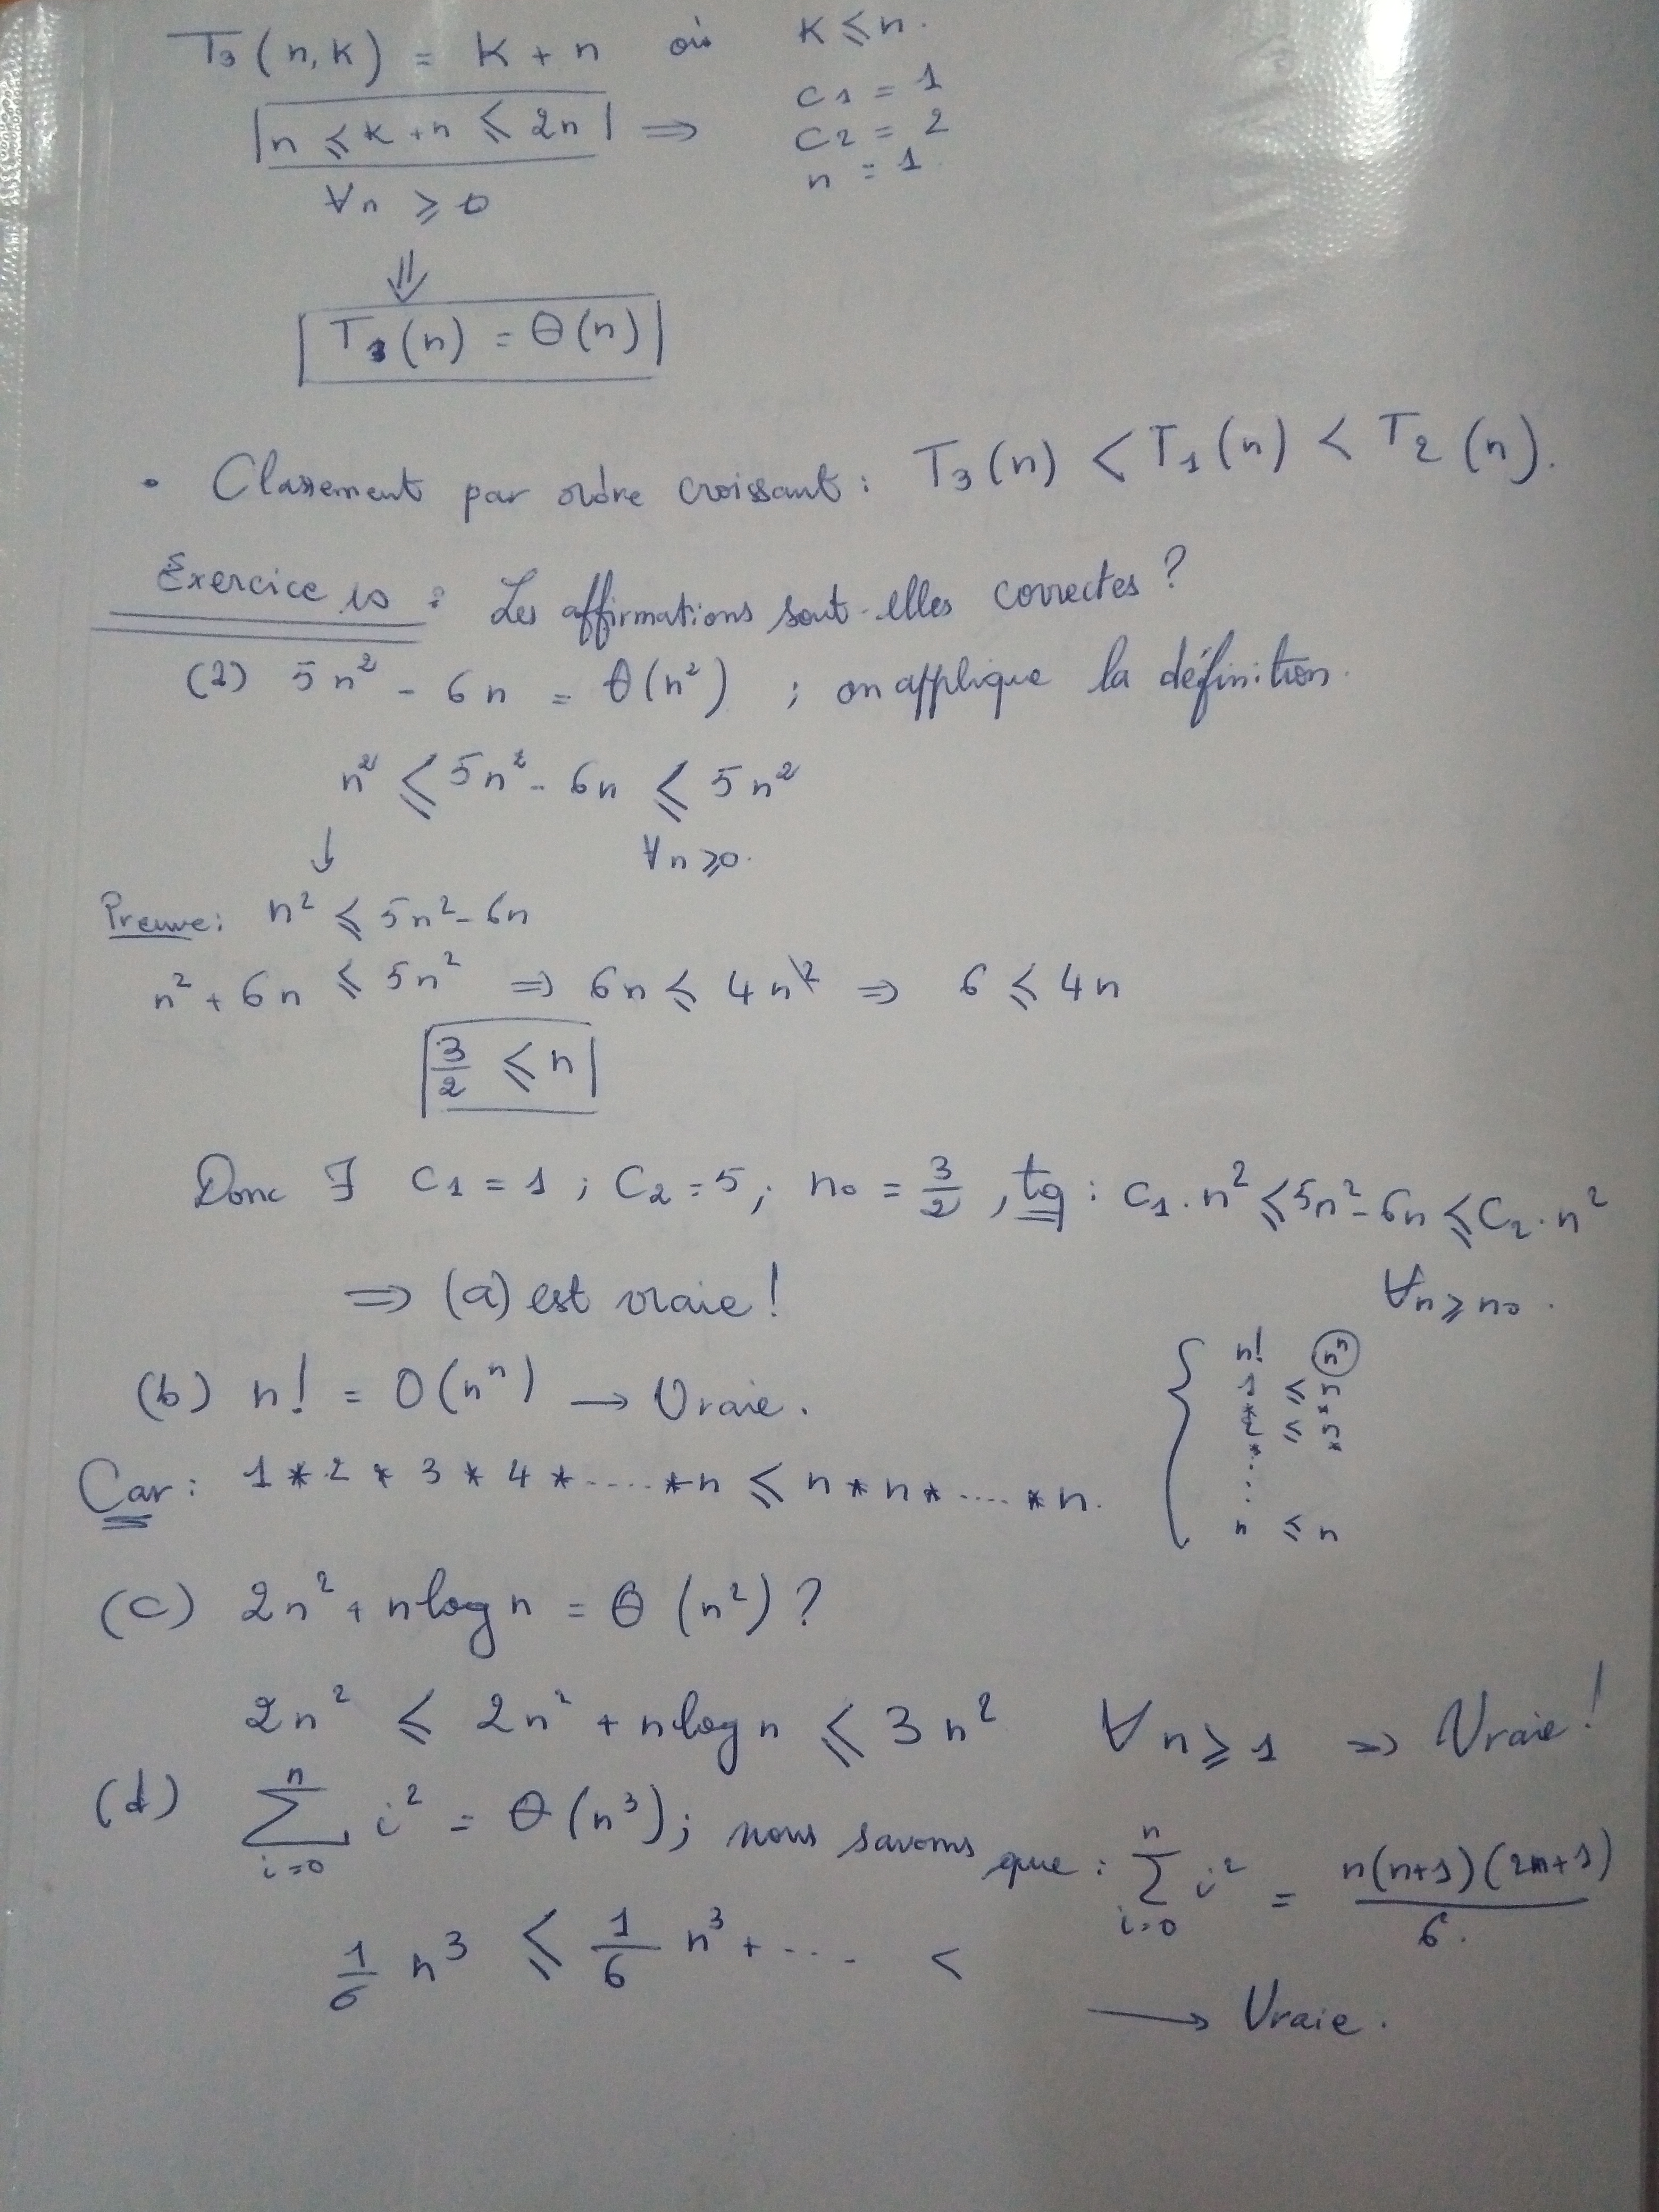 T3(n,k) = k + n où k ≤ n.
|n ≤ k+n ≤ 2n| ⇒ c1 = 1
c2 = 2
n = 1
∀n ≥ 0
⇓
|T3(n) = Θ(n)|
• Classement par ordre croissant : T3(n) < T1(n) < T2(n).
Exercice 10 : Les affirmations sont-elles correctes ?
(a) 5n² - 6n = Θ(n²) ; on applique la définition.
n² ≤ 5n² - 6n ≤ 5n²
↓ ∀n ≥ 0.
Preuve : n² ≤ 5n² - 6n
n² + 6n ≤ 5n² ⇒ 6n ≤ 4n² ⇒ 6 ≤ 4n
|3/2 ≤ n|
Donc ∃ C1 = 1 ; C2 = 5 ; n0 = 3/2 , tq : C1.n² ≤ 5n² - 6n ≤ C2.n²
⇒ (a) est vraie ! ∀n ≥ n0.
(b) n! = O(nⁿ) → Vraie.
Car : 1 * 2 * 3 * 4 * ..... * n ≤ n * n * .... * n.
{ n! nⁿ
1 ≤ n
* *
2 ≤ n
* *
⋮
n ≤ n
(c) 2n² + n log n = Θ(n²) ?
2n² ≤ 2n² + n log n ≤ 3n² ∀n ≥ 1 ⇒ Vraie !
(d) ∑_{i=0}^{n} i² = Θ(n³) ; nous savons que : ∑_{i=0}^{n} i² = n(n+1)(2n+1)/6.
1/6 n³ ≤ 1/6 n³ + ... <
→ Vraie.